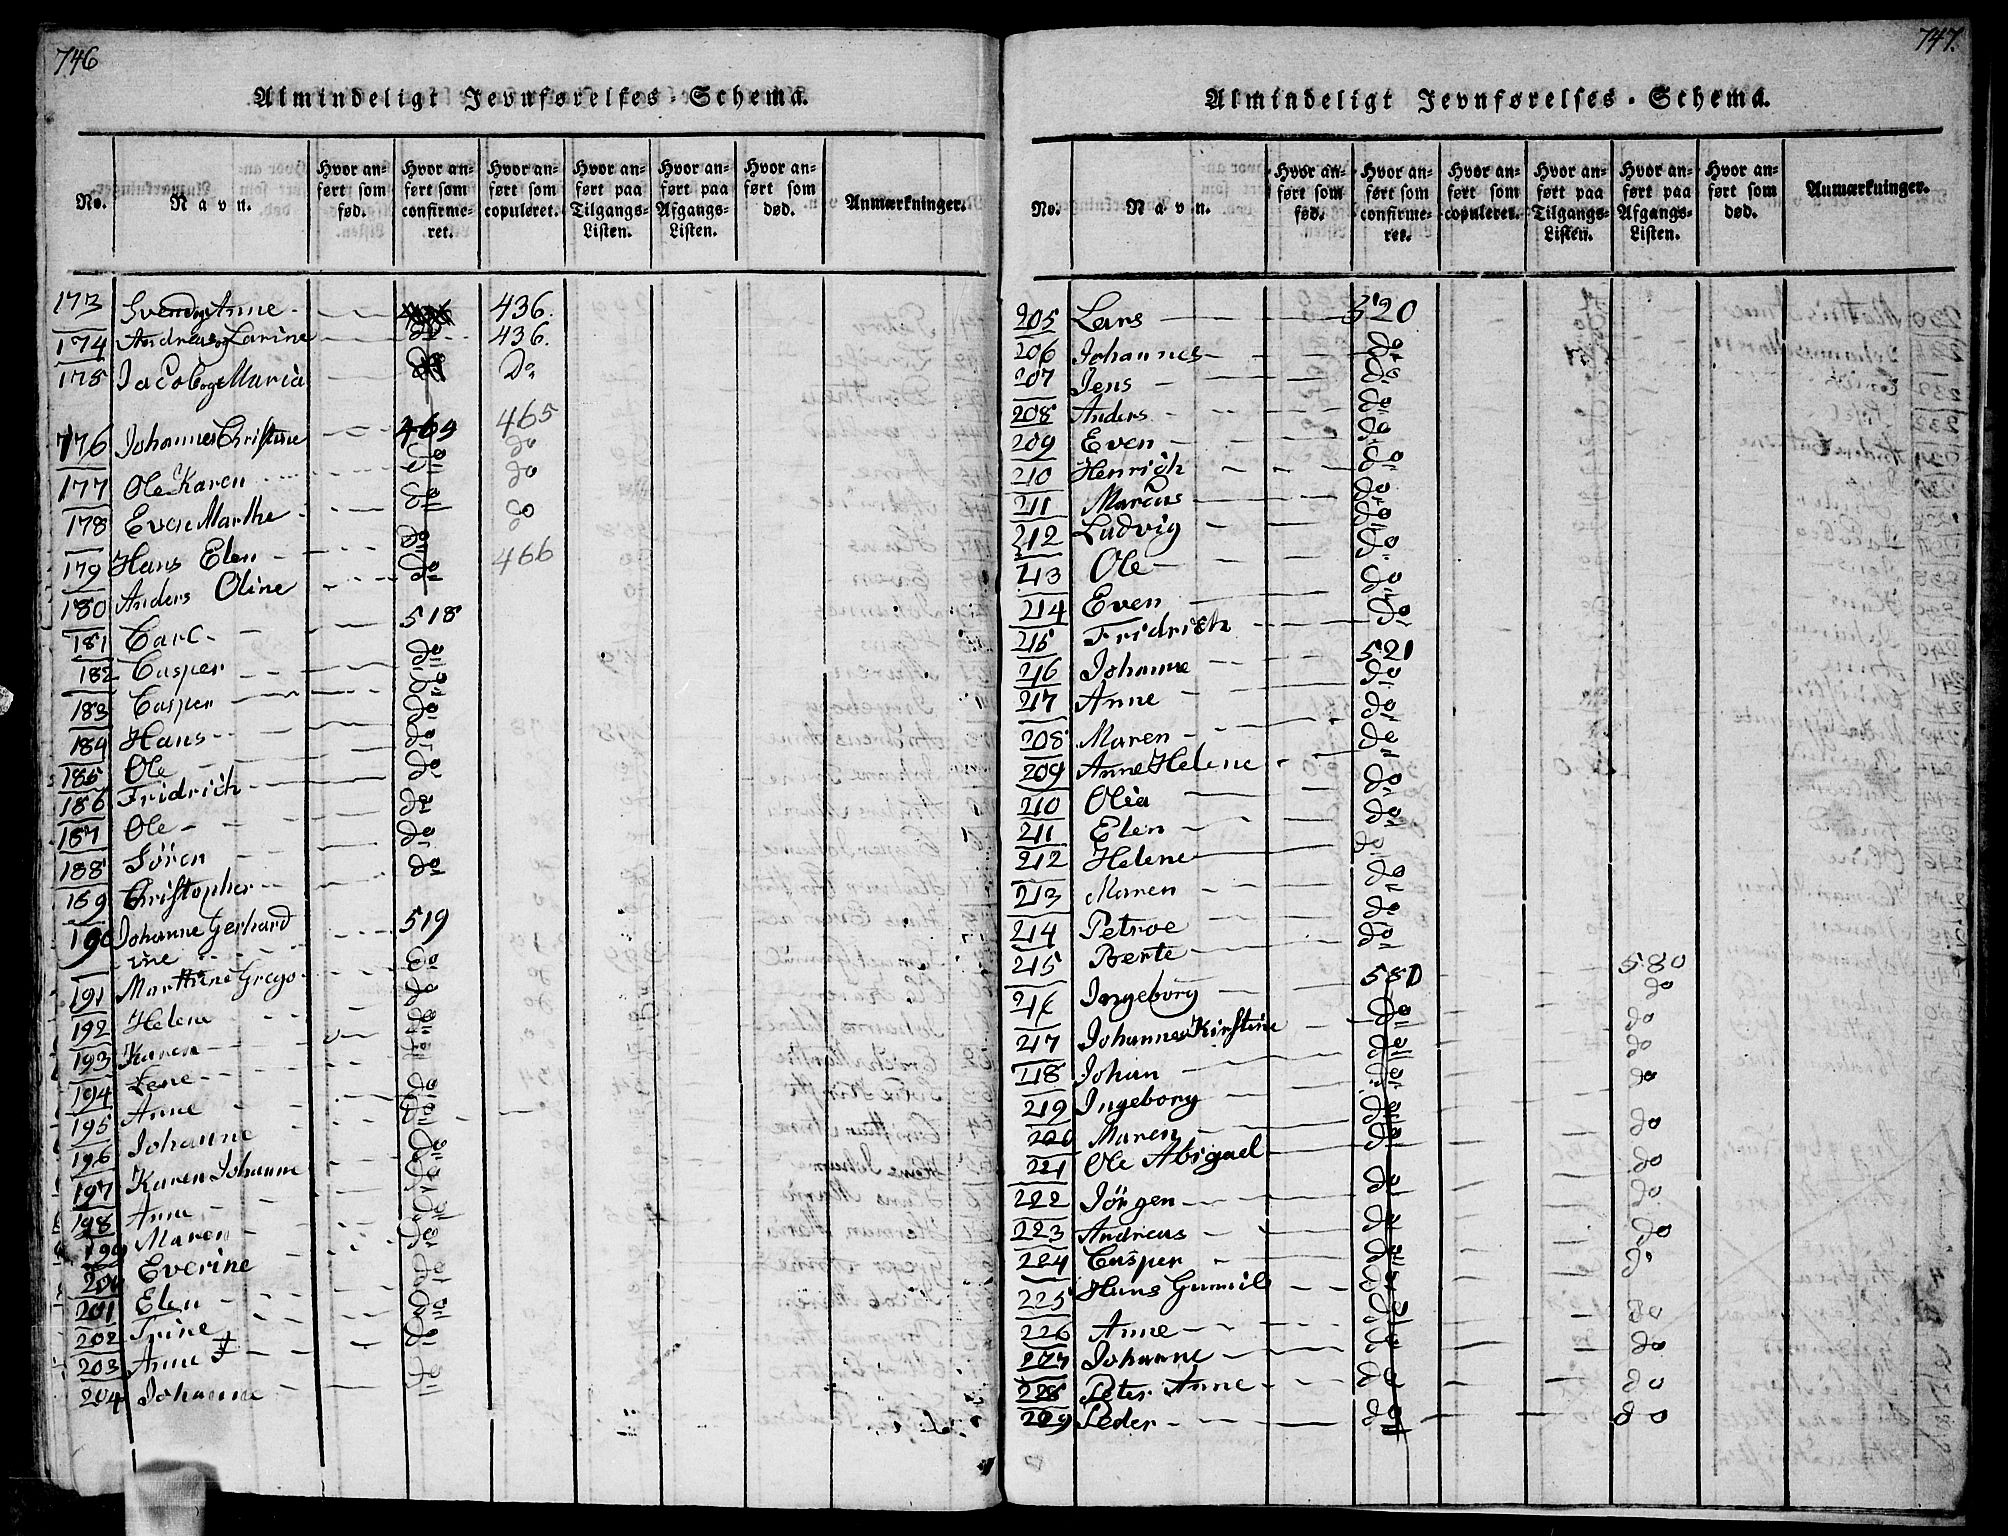 746
Almindeligt Jevnførelses-Schema.
No. Navn. Hvor anført som fød. Hvor anført som confirmeret. Hvor anført som copuleret. Hvor anført paa Tilgangs-Listen. Hvor anført paa Afgangs-Listen. Hvor anført som død. Anmærkninger.
173 Svend og Anne - 436.
174 Andreas og Larine 436.
175 Jacob og Maria Do
176 Johannes Christine 465 465
177 Ole Karen do do
178 Even Marthe do do
179 Hans Elen do do
180 Anders Oline do 466
181 Carl 518
182 Casper do
183 Casper do
184 Hans do
185 Ole do
186 Fridrich do
187 Ole do
188 Søren do
189 Christopher do
190 Johanne Gerhard
ine 519
191 Marthine Grego do
192 Helene do
193 Karen do
194 Lene
195 Anne do
196 Johanne do
197 Karen Johanne do
198 Anne do
199 Maren do
200 Everine do
201 Elen do
202 Trine do
203 Anne do
204 Johanne do
747.
Almindeligt Jevnførelses-Schema.
No. Navn. Hvor anført som fød. Hvor anført som confirmeret. Hvor anført som copuleret. Hvor anført paa Tilgangs-Listen. Hvor anført paa Afgangs-Listen. Hvor anført som død. Anmærkninger.
205 Lars 520
206 Johannes do
207 Jens do
208 Anders do
209 Even do
210 Henrich do
211 Marcus do
212 Ludvig do
213 Ole do
214 Even do
215 Fridrich do
216 Johanne 521
217 Anne do
208 Maren do
209 Anne Helene do
210 Olia do
211 Elen do
212 Helene do
213 Maren do
214 Petroe do
215 Berte do
216 Ingeborg 580 580
217 Johannes Kirstine do do
218 Johan do do
219 Ingeborg do do
220 Maren do do
221 Ole Abigael do do
222 Jørgen do do
223 Andreas do do
224 Casper do do
225 Hans Gunnild do do
226 Anne do do
227 Johanne do do
228 Peter Anne do do
229 Peder do do